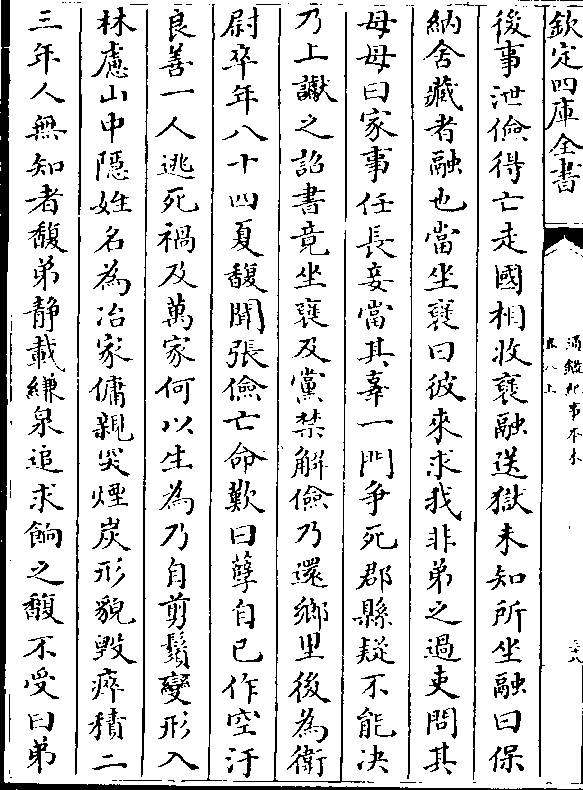 欽定四庫全書
通鑑紀事本末
卷八上
後事泄儉得亡走國相收襃融送獄未知所坐融曰保
納舍藏者融也當坐襃曰彼來求我非弟之過吏問其
母母曰家事任長妾當其辜一門爭死郡縣疑不能决
乃上讞之詔書竟坐襃及黨禁解儉乃還鄉里後為衛
尉卒年八十四夏馥聞張儉亡命歎曰孽自己作空汙
良善一人逃死禍及萬家何以生為乃自剪鬚變形入
林慮山中隱姓名為冶家傭親突煙炭形貌毀瘁積二
三年人無知者馥弟靜載縑泉追求餉之馥不受曰弟